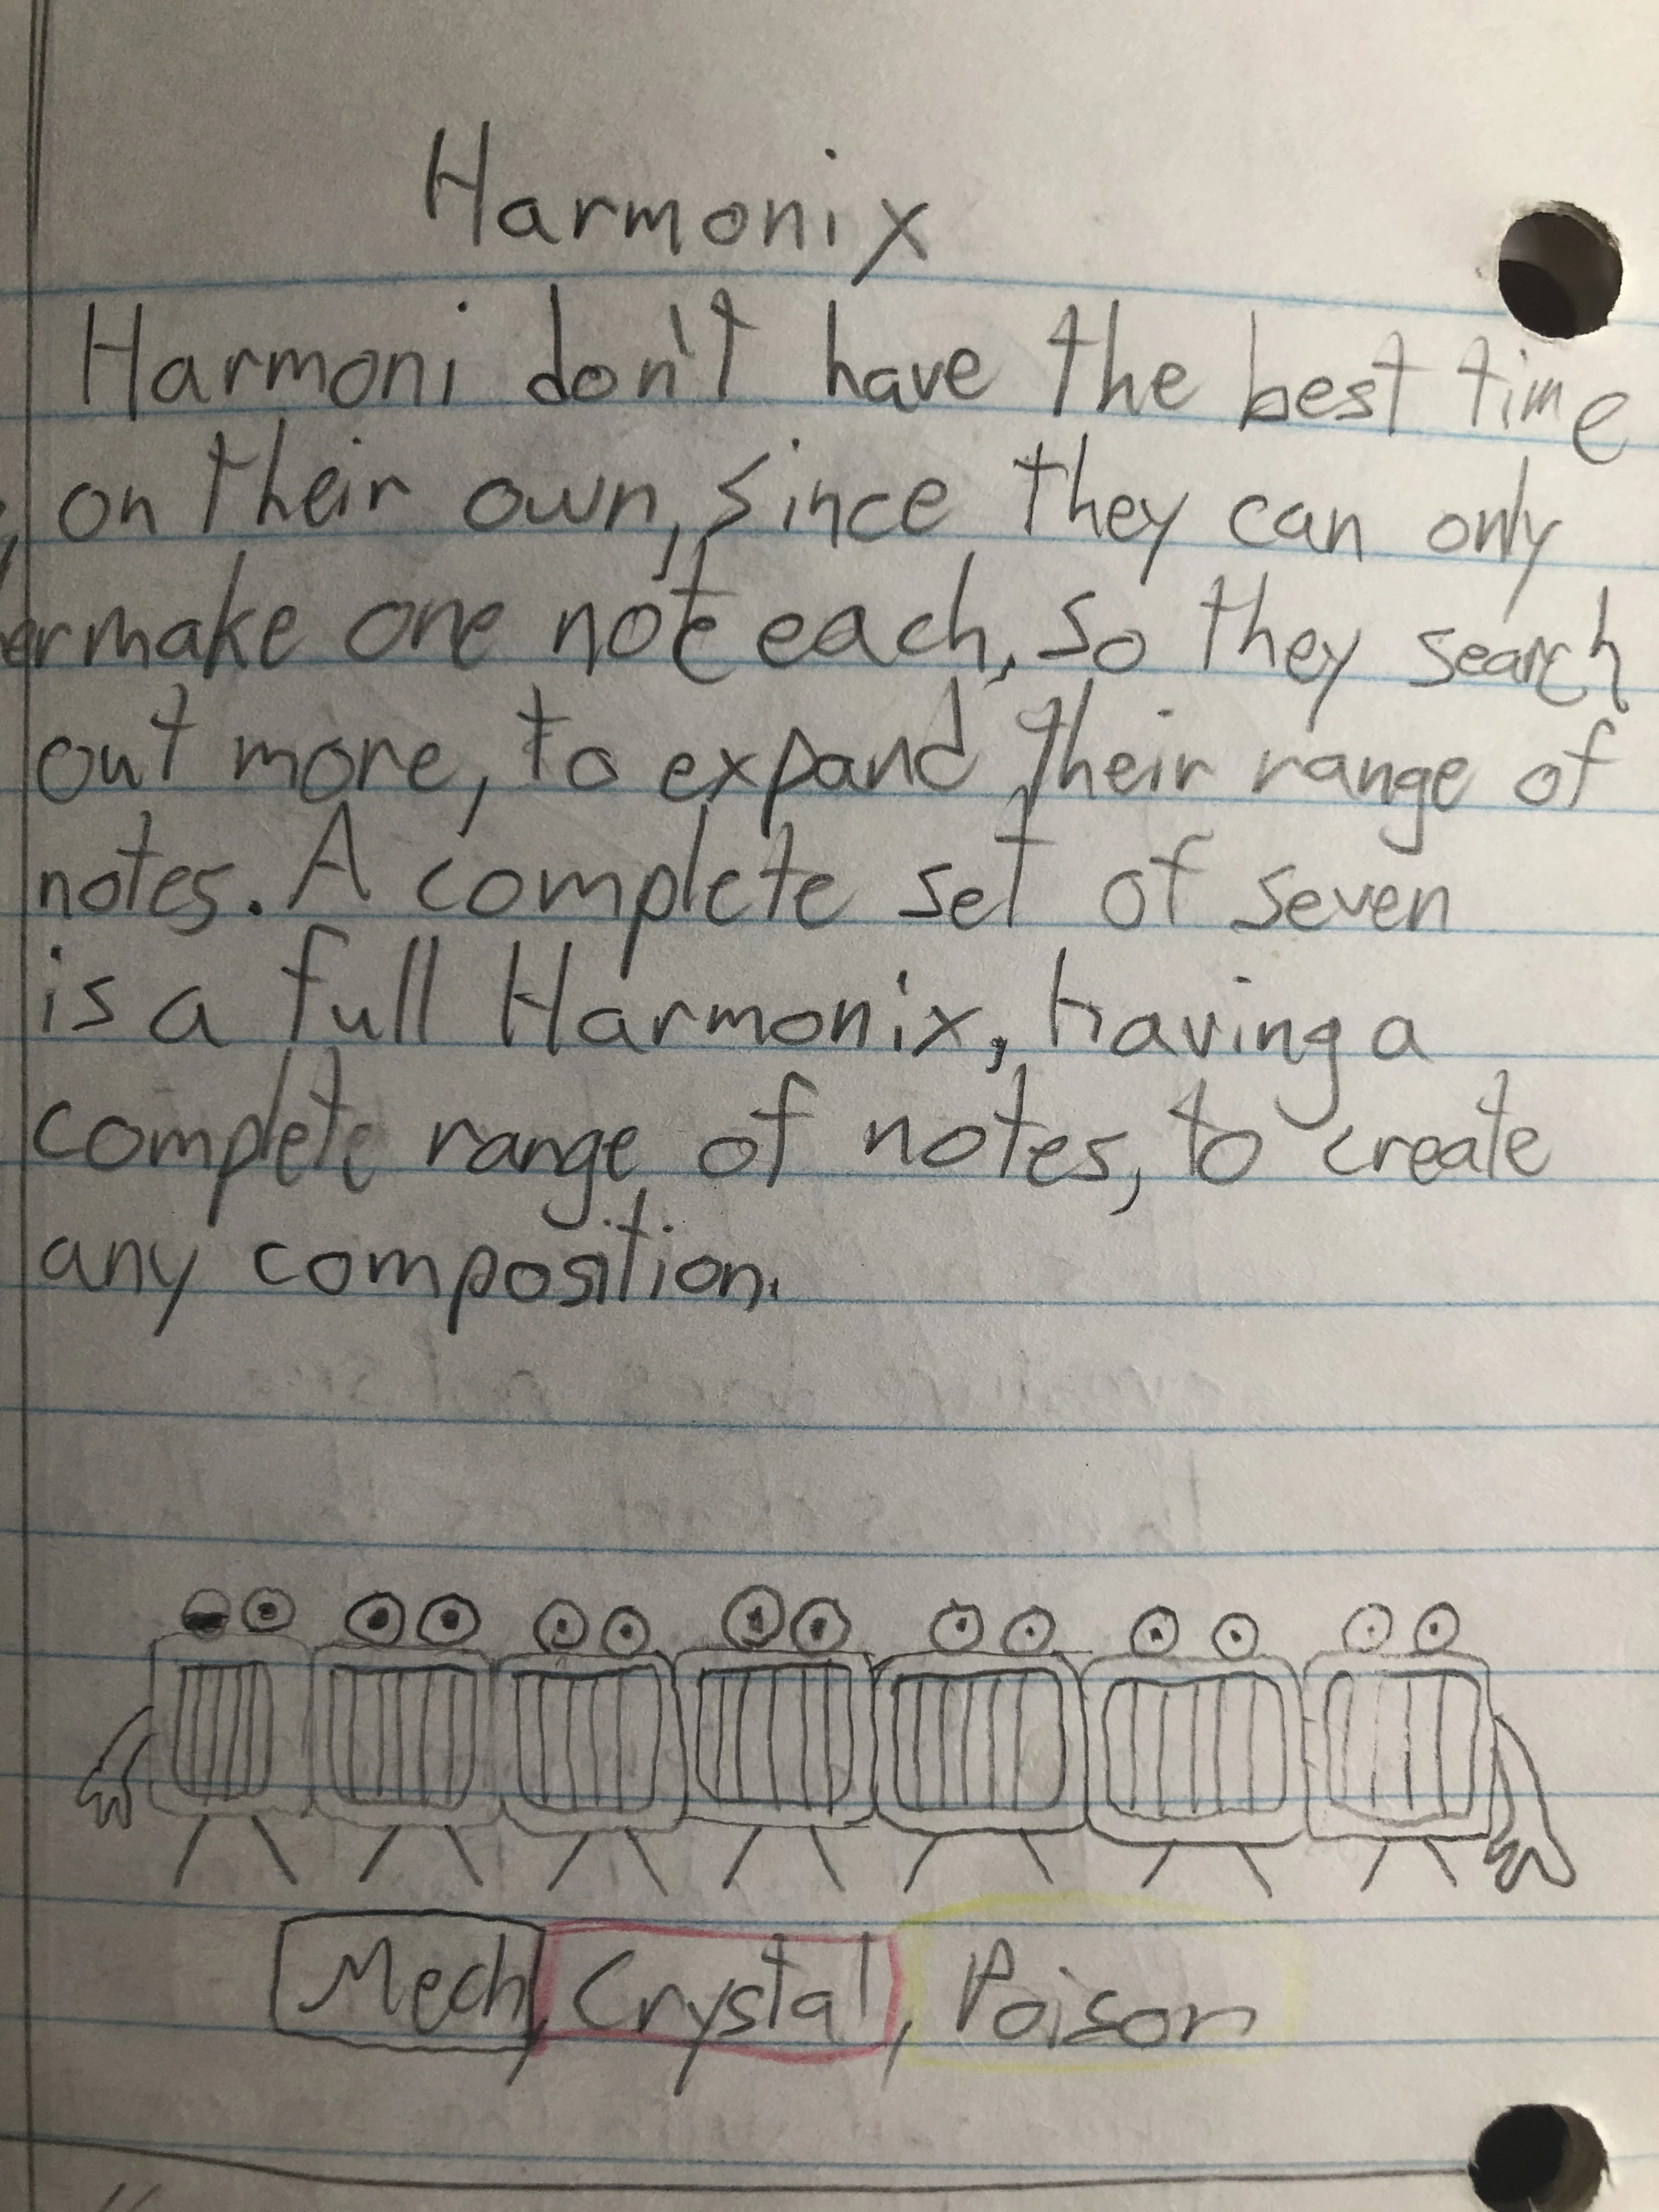 Harmonix
Harmoni don't have the best time
on their own, since they can only
make one note each, so they search
out more, to expand their range of
notes. A complete set of seven
is a full Harmonix, having a
complete range of notes, to create
any composition.
Mech, Crystal, Poison